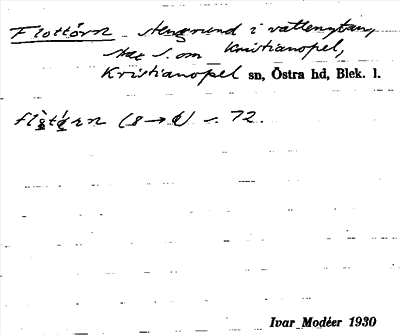 Flottörn Stengrund i vattenytan,
S. om Kristianopel,
Kristianopel sn, Östra hd, Blek. l.
72.
Ivar Modéer 1930